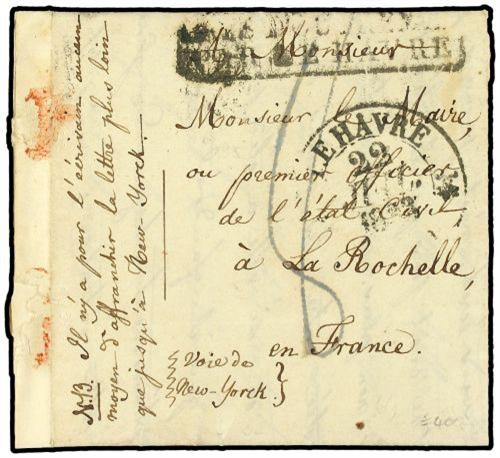 A Monsieur
Monsieur le Maire,
ou premier officier
de l'état Civil
à La Rochelle,
en France.
Voie de
New-Yorck.
N.B. Il n'y a pour l'écrivain aucun
moyen d'affranchir la lettre plus loin
que jusqu'à New-Yorck.
LE HAVRE
22